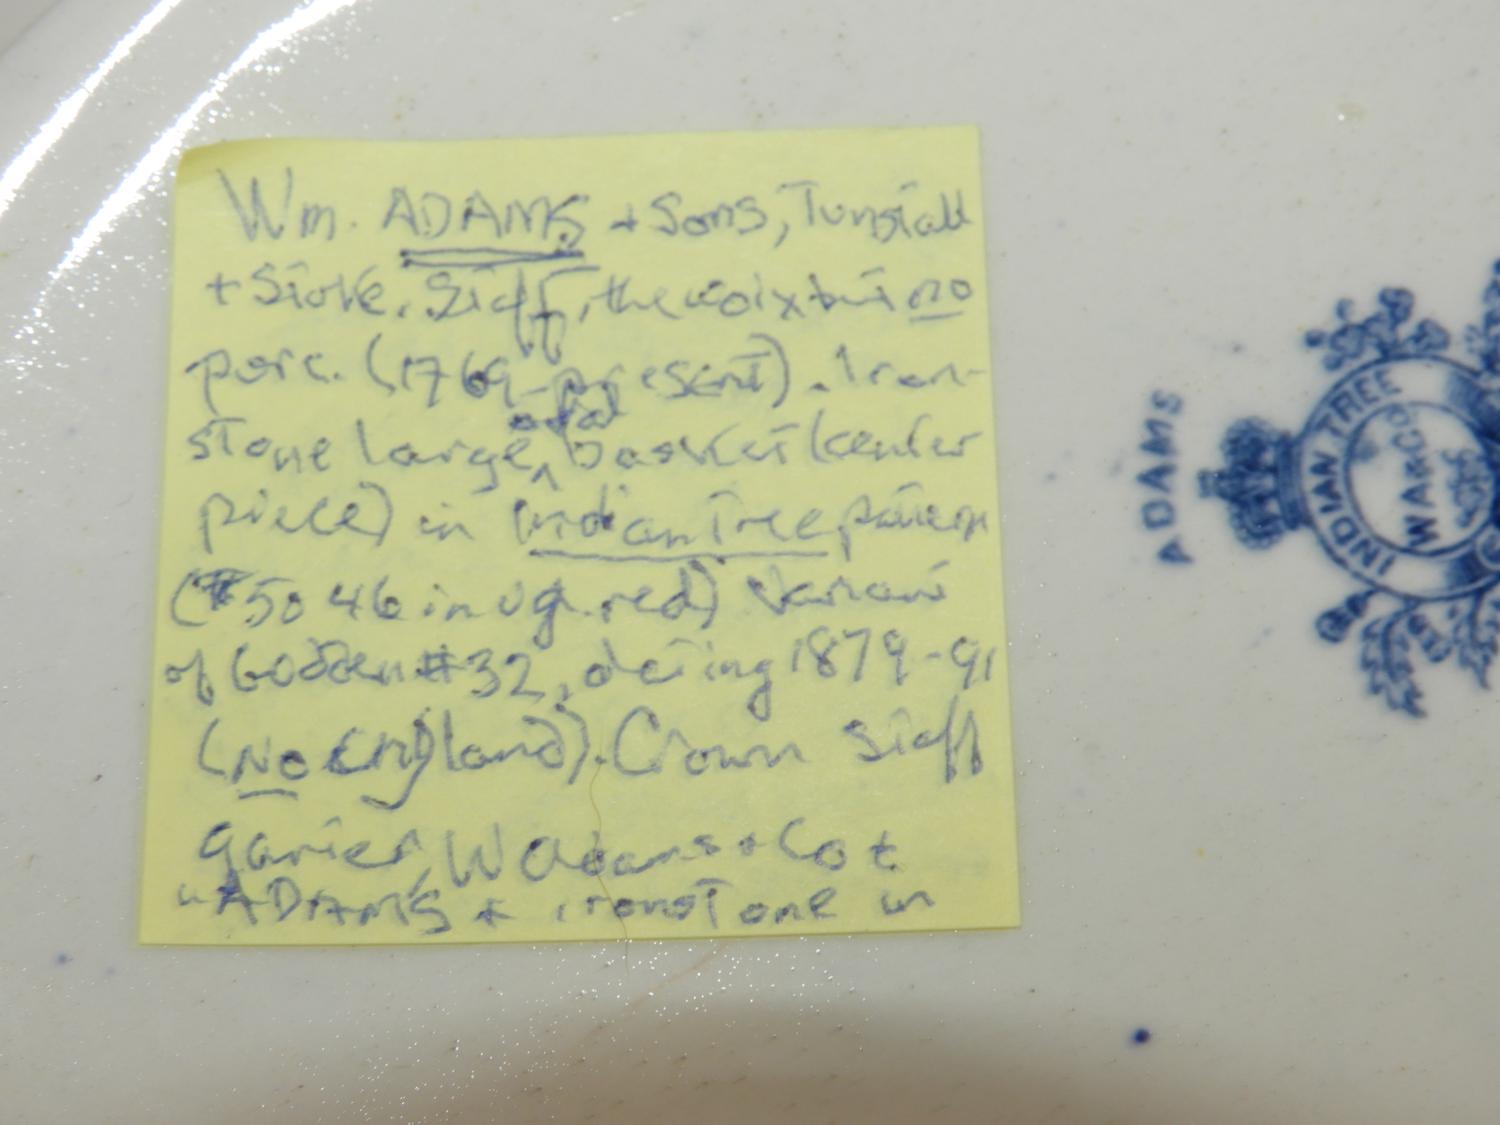 Wm. ADAMS + Sons, Tunstall
+ Stoke, Staff, the world but no
porc. (1769-present). Iron-
stone large oval basket (center
piece) in Indian Tree pattern
(#5046 in ug. red) Variant
of Godden #32, dating 1879-91
(No England). Crown Staff
Garter, W Adams + Co +
"ADAMS + ironstone in
ADAMS
INDIAN TREE